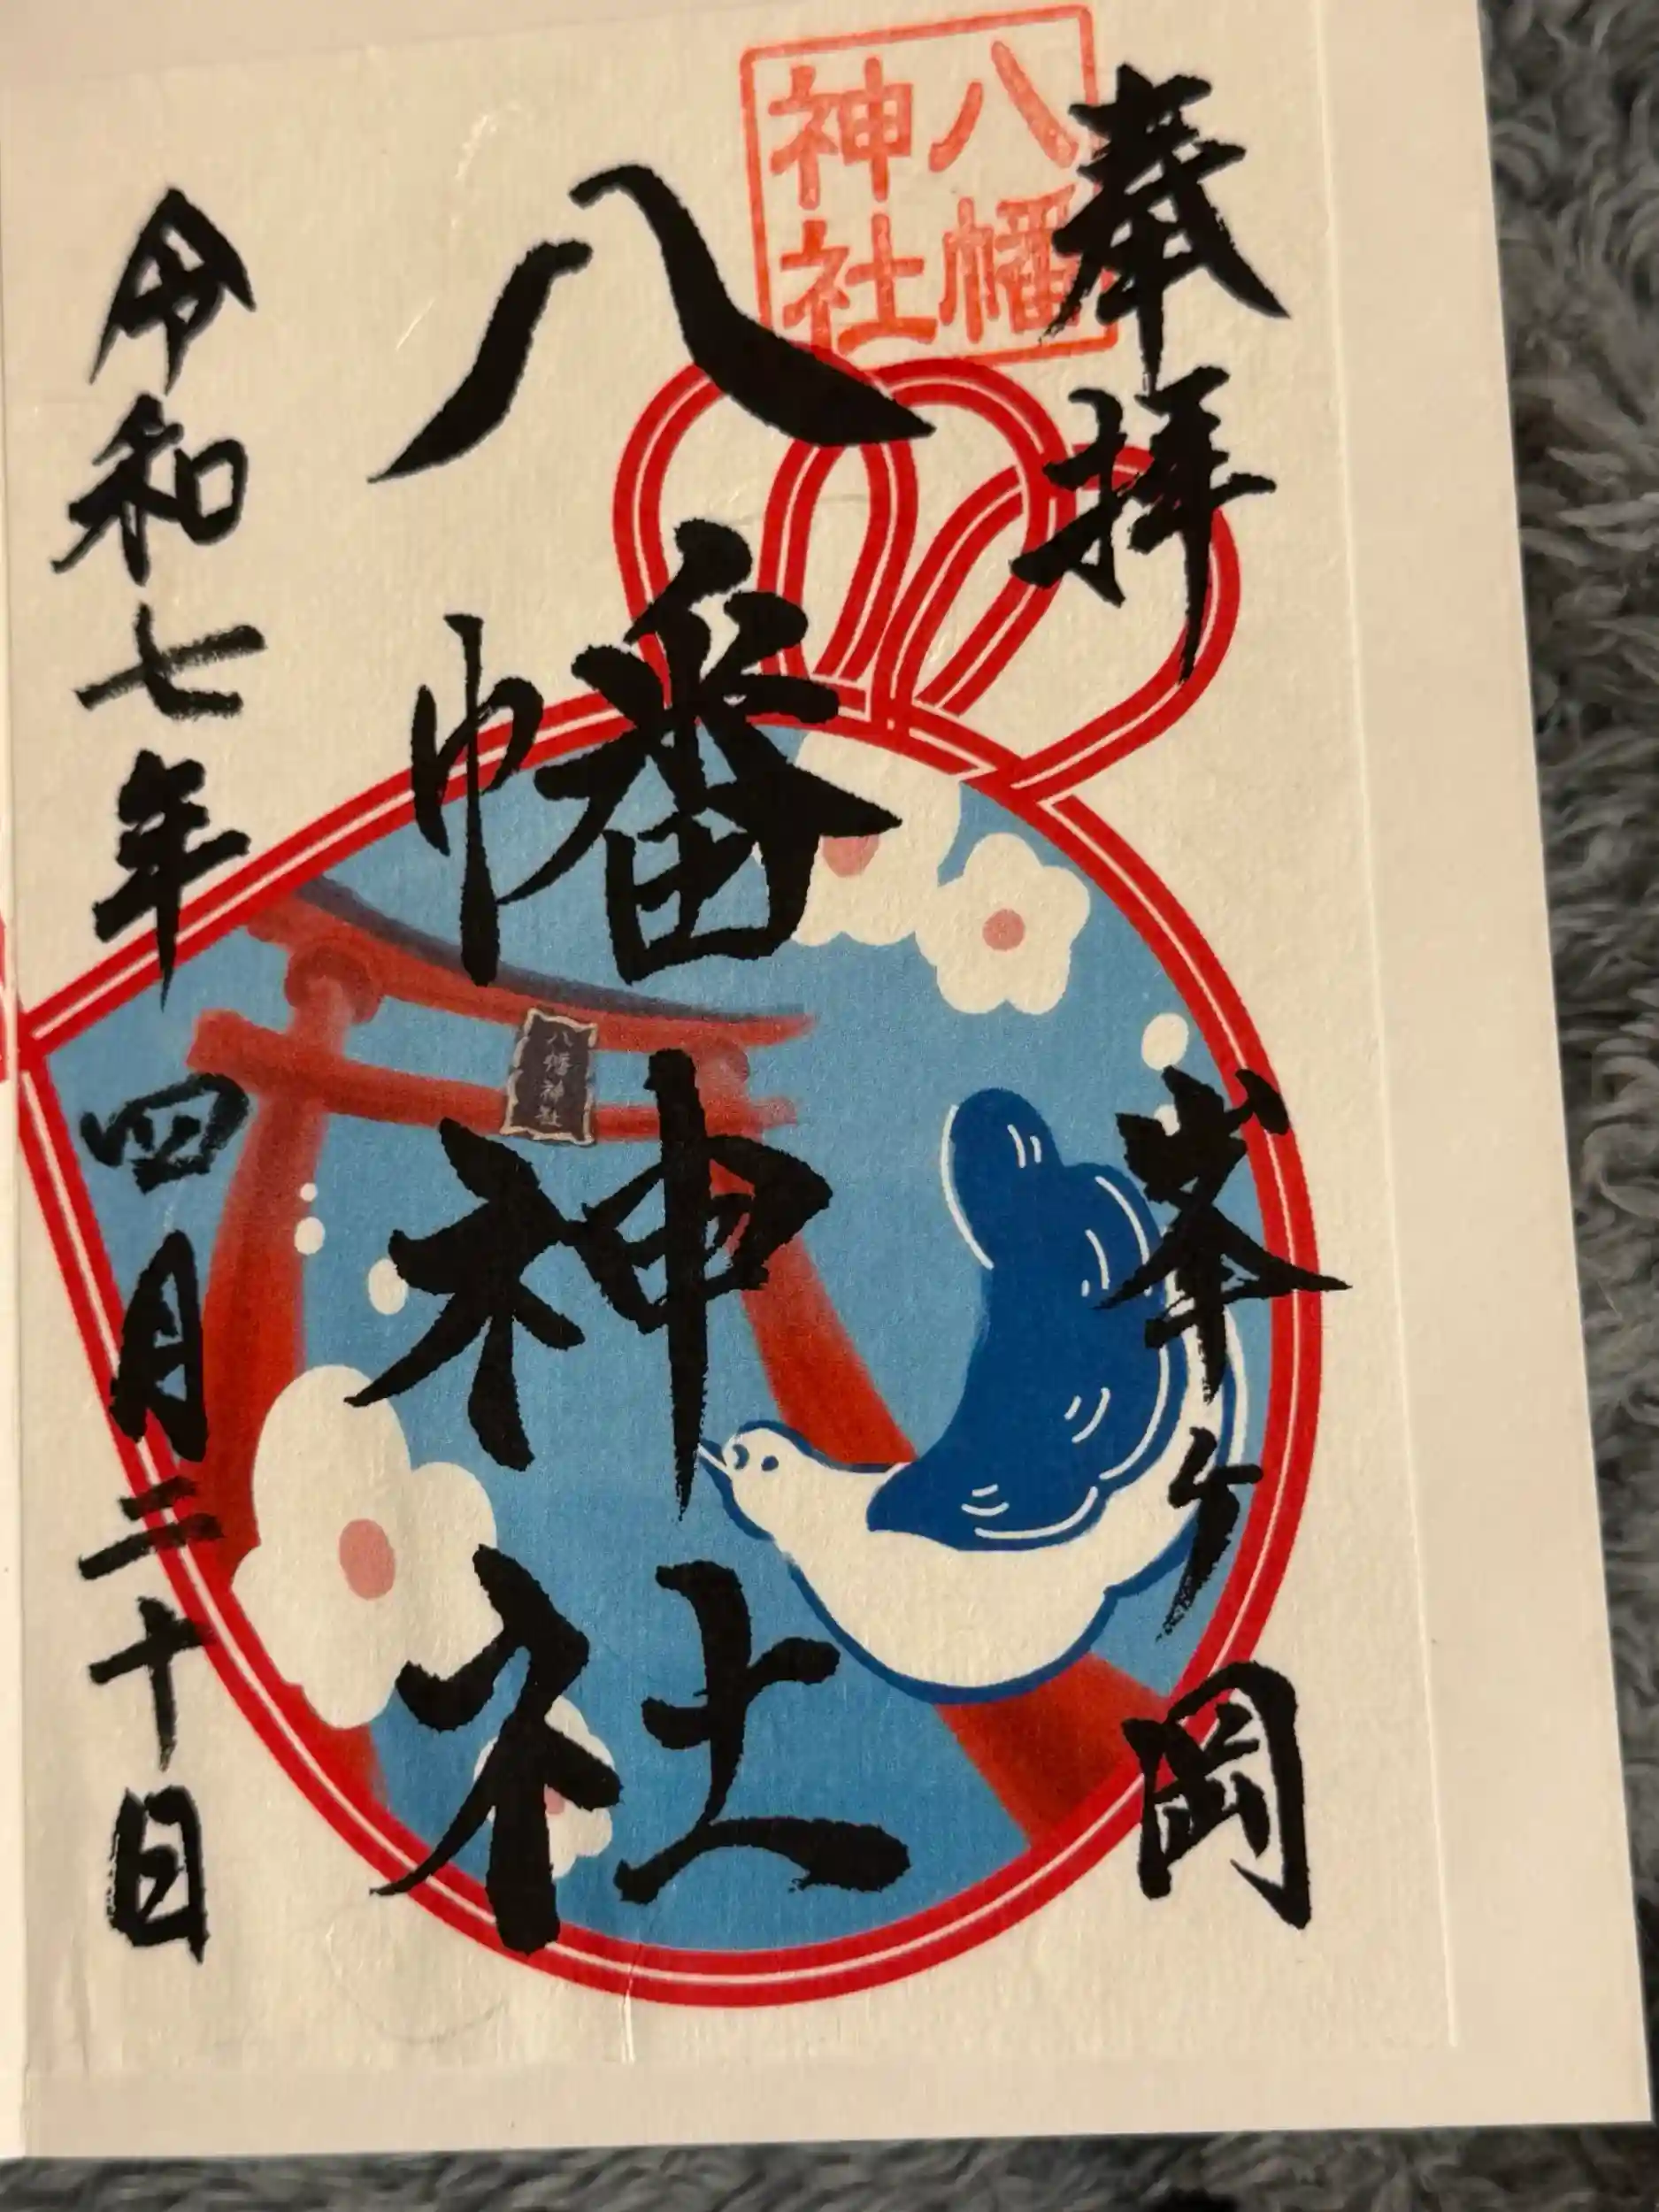 奉拝
峯ヶ岡
八幡神社
八幡神社
八幡神社
令和七年四月二十日